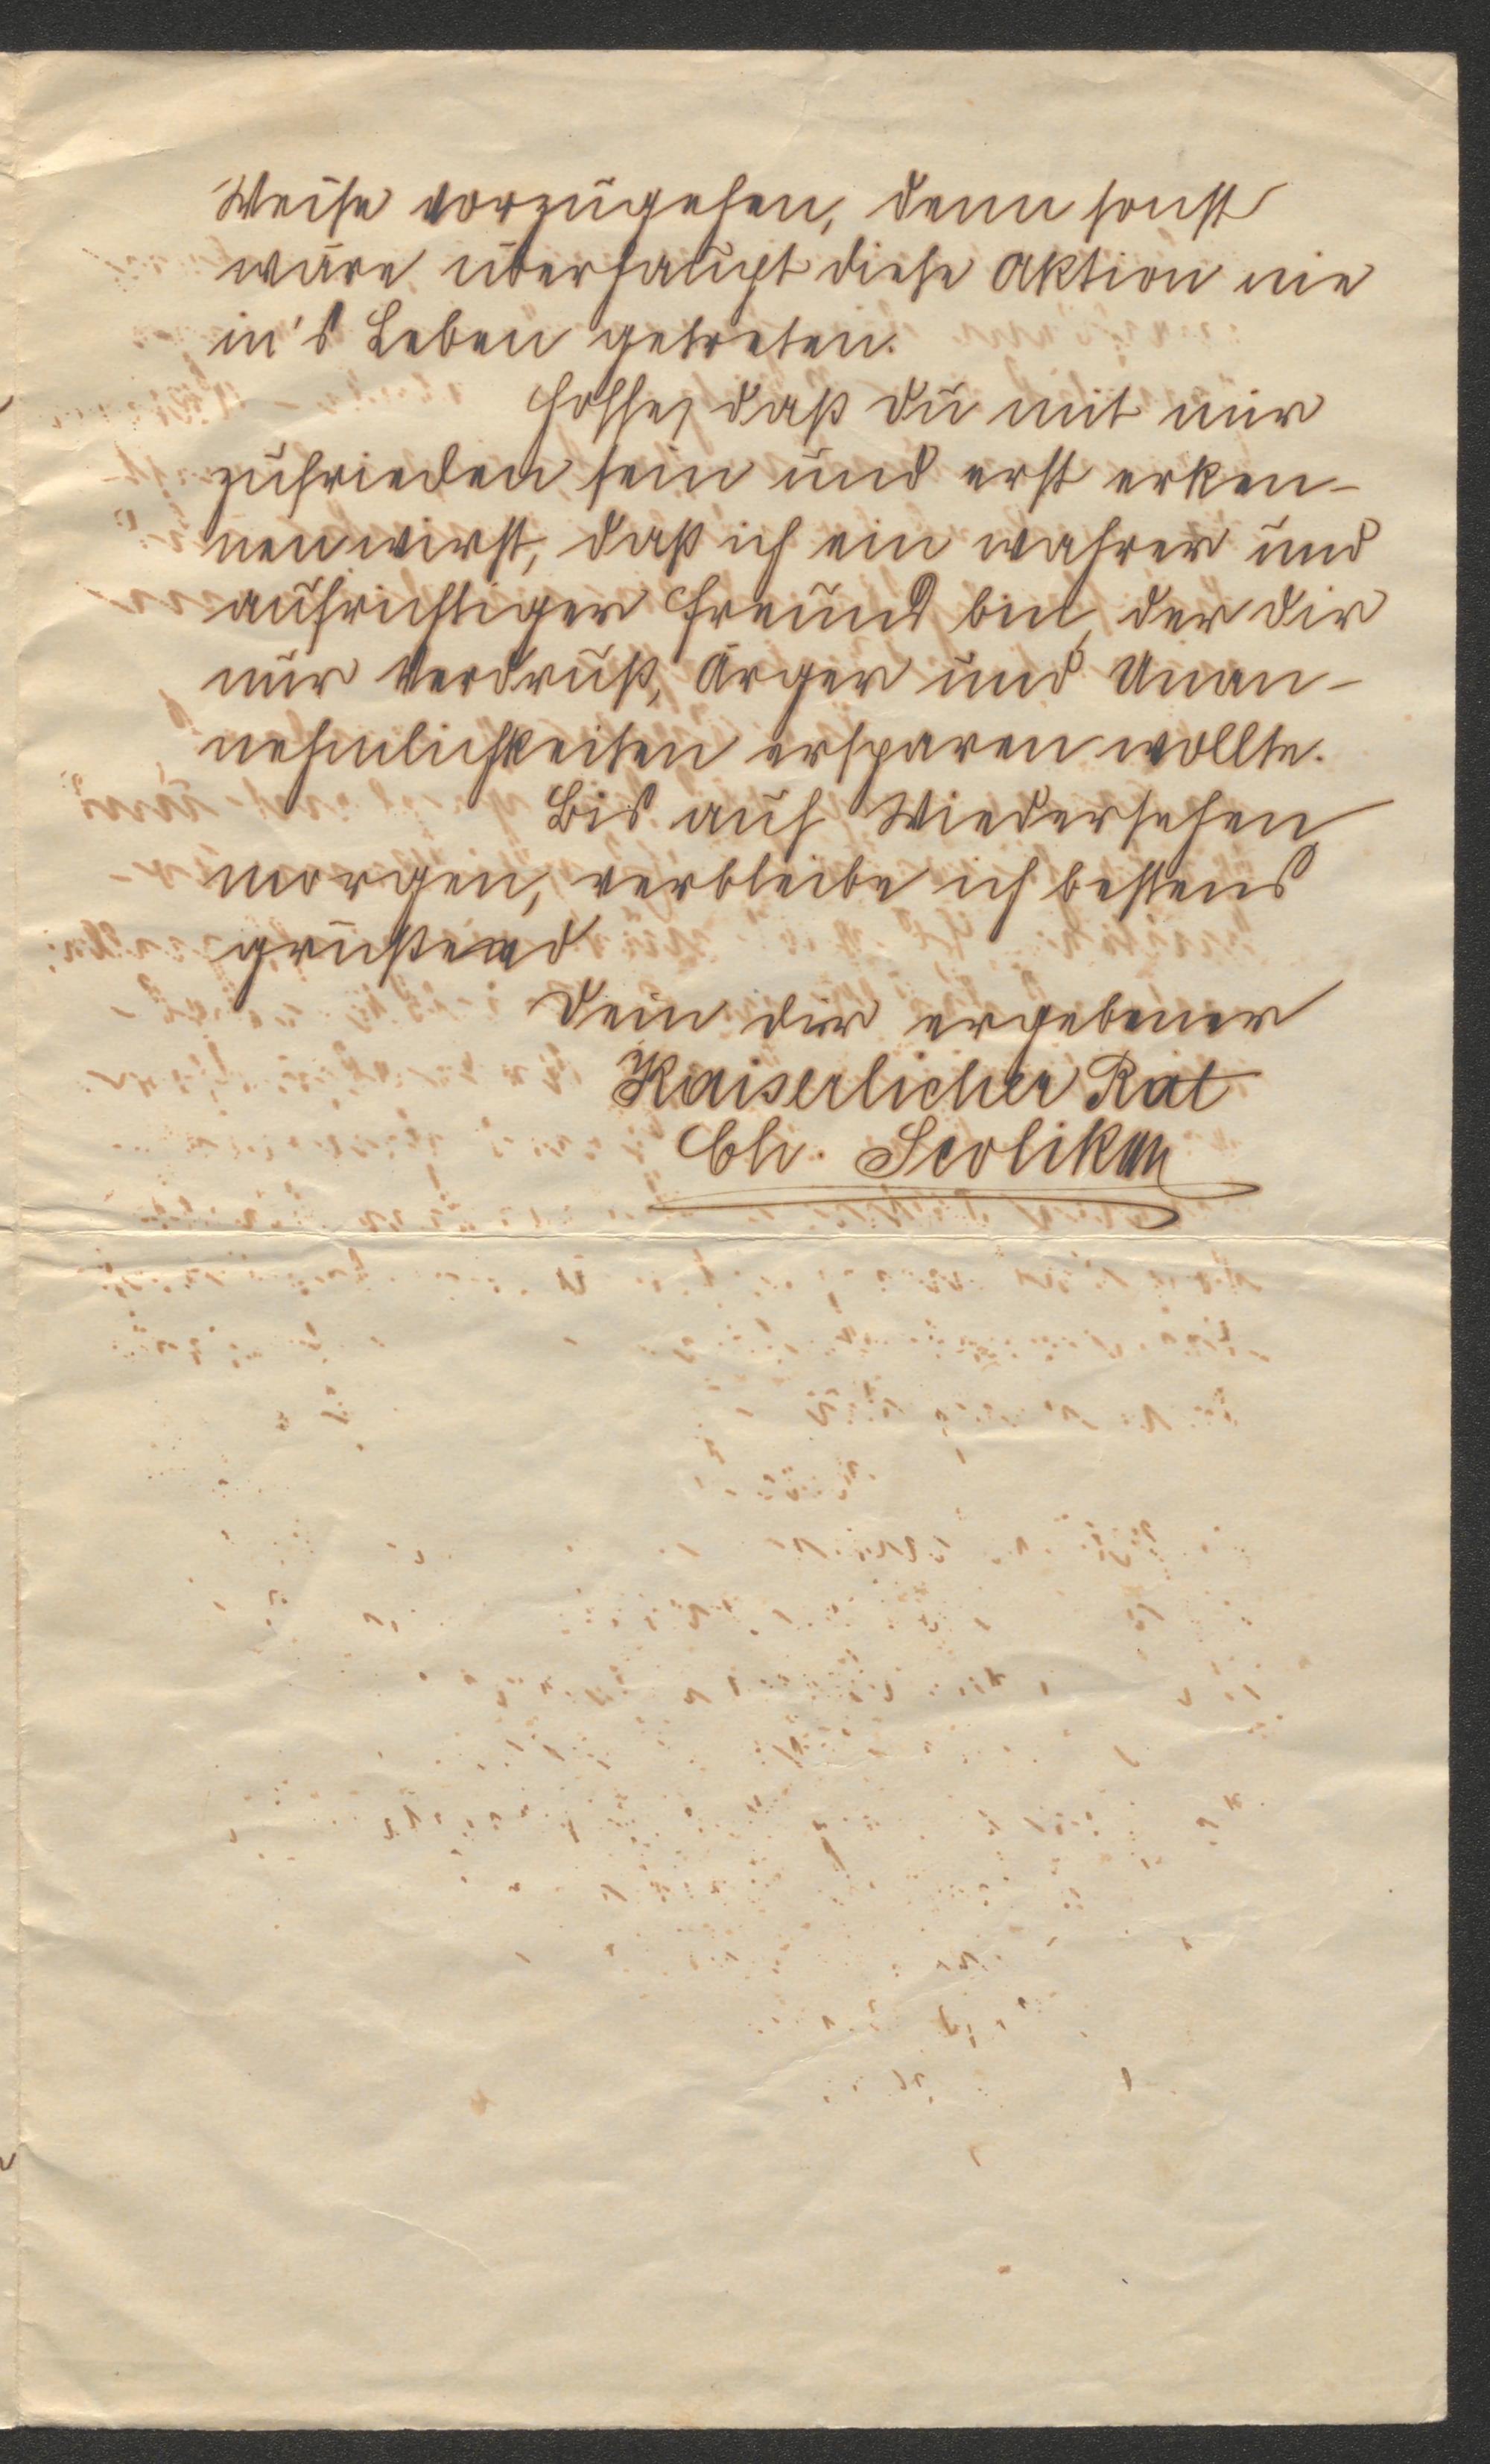 Weise vorzugehen, denn sonst
wäre überhaupt diese Aktion nie
in's Leben getreten.
Hoffe, daß du mit mir
zufrieden sein und erst erken-
nen wirst, daß ich ein wahrer und
aufrichtiger Freund bin, der dir
nur Verdruß, Ärger und Unan-
nehmlichkeiten ersparen wollte.
Bis auf Wiedersehen
morgen, verbleibe ich bestens
grüßend
Dein dir ergebener
Kaiserlicher Rat
Ch. Scolik